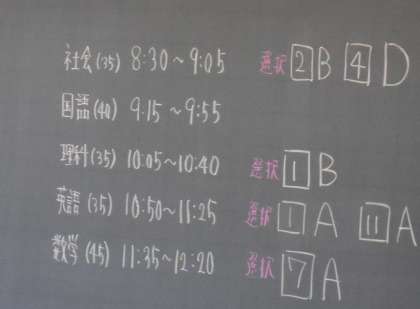 社会(35) 8:30~9:05 選択 2B 4D
国語(40) 9:15~9:55
理科(35) 10:05~10:40 選択 1B
英語(35) 10:50~11:25 選択 1A 11A
数学(45) 11:35~12:20 選択 7A